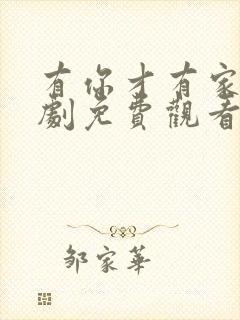 有你才有家
劇免費觀看
鄒家華